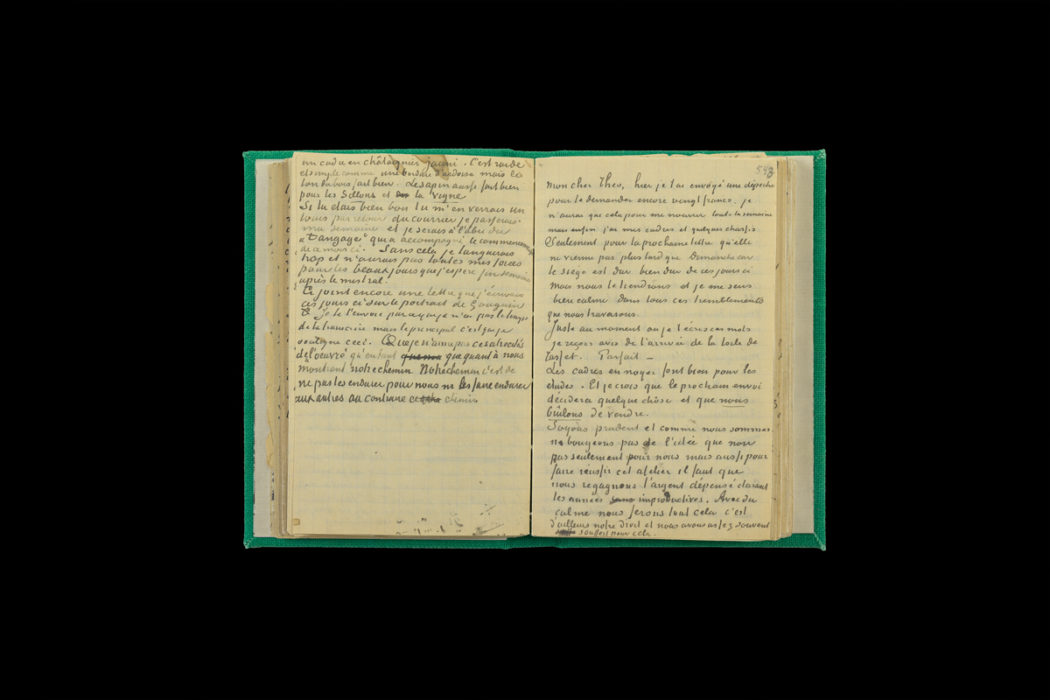 un cadre en châtaignier jauni. C'est raide
et simple comme une bordure d'ardoise mais le
ton du bois fait bien. Le sapin aussi fait bien
pour les Sillons et la vigne
Si tu étais bien bon tu m'en verrais un
louis par retour du courrier je passerais
ma semaine et je serais à l'abri du
"tangage" qui a accompagné le commencement
de a mois ci. Sans cela je languerais
trop et n'aurais pas toutes mes forces
pour les beaux jours que j'espère fin semaine
après le mistral.
Ci joint encore une lettre que j'écrivais
ces jours ci sur le portrait de Gauguin
je te l'envoie parce que je n'ai pas le temps
de la transcrire mais le principal c'est que je
souligne ceci. Que je n'aime pas ces atrocités
de l'oeuvre qu'en tant que non que quant à nous
montrant notre chemin Notre chemin c'est de
ne pas les endurer pour nous ni les faire endurer
aux autres au contraire chemin
543
Mon cher Theo, hier je t'ai envoyé une dépêche
pour te demander encore vingt francs. je
n'aurai que cela pour me nourrir toute la semaine
mais enfin j'ai mes cadres et quelques chassis
Seulement pour la prochaine lettre qu'elle
ne vienne pas plus tard que dimanche car
le siège est dur bien dur de ces jours ci
Mais nous le tiendrons et je me sens
bien calme dans tous ces tremblements
que nous traversons.
Juste au moment où je t'écris ces mots
je reçois avis de l'arrivée de la toile de
Tasset. Parfait –
Les cadres en noyer font bien pour les
etudes. Et je crois que le prochain envoi
décidera quelque chose et que nous
brûlons de vendre.
Soyons prudent et comme nous sommes
ne bougeons pas de l'idée que non
pas seulement pour nous mais aussi pour
faire réussir cet atelier il faut que
nous regagnons l'argent dépensé durant
les années sans improductives. Avec du
calme nous ferons tout cela c'est
d'ailleurs notre droit et nous avons assez souvent
souffert pour cela.